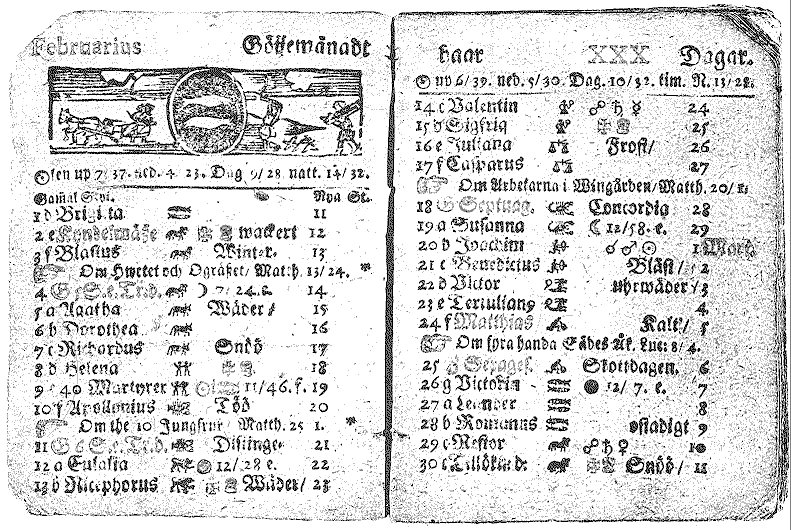 Februarius Göijemånadt
Olen up 7/ 37. ned. 4 23. Dag 9/28 natt. 14/32.
Gamal Styl. Nya St.
1 d Brigitta 11
2 e Kyndelmässe wackert 12
3 f Blasius Winter. 13
Om Hwetet och Ogräset/ Matth. 13/24. *
4 G 5. e. Tr. d. ☽ 7/24. e. 14
5 a Agatha Wäder/ 15
6 b Dorothea 16
7 c Richardus Snöö 17
8 d Helena 18
9 e 40 Martyrer 11/46. f. 19
10 f Apollonius Töö 20
Om the 10 Jungfrur/ Matth. 25 1. *
11 G 6 S. e. Tr. d. Distinge. 21
12 a Eulalia 12/28 e. 22
13 b Nicephorus Wäder/ 23
haar XXX Dagar.
up 6/39. ned. 5/30. Dag. 10/32. tim. N. 13/28.
14 c Valentin ☍ ♄ ☿ 24
15 d Sigfrid 25
16 e Juliana Frost/ 26
17 f Casparus 27
Om Arbetarna i Wingården/ Matth. 20/1.
18 G Septuag. Concordia 28
19 a Susanna ☾ 12/58. e. 29
20 b Joachim ☌ ♂ ☉ 1 Mart.
21 c Benedictus Bläst/ 2
22 d Victor uhrwäder/ 3
23 e Tertulians 4
24 f Matthias Kalt/ 5
Om fyra handa Sädes Åk. Luc: 8/4.
25 G Sexages. Skottdagen. 6
26 g Victorin ● 12/7. e. 7
27 a Leander 8
28 b Romanus ostadigt 9
29 c Nestor ☍ ♄ ♀ 10
30 c Tillökind: Snöö/ 11